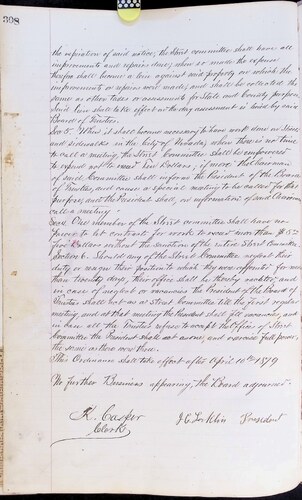 308
the expiration of said notice, the Street Committee shall have all
improvements and repairs done, when so made the expense
thereof shall become a lien against said property on which the
improvements or repairs were made, and shall be collected the
same as other taxes or assessments for State and County purposes
Said lien shall take effect on the day assessment is levied by said
Board of Trustees.
Sec 5. When it shall become necessary to have work done on Streets
and sidewalks in the City of Nevada, when there is no time
to call a meeting, the Street Committee shall be empowered
to expend not to exceed Dollars, if more the Chairman
of said Committee shall inform the President of the Board
of Trustees, and cause a special meeting to be called for that
purpose, and the President shall, on information of said Chairman
call a meeting.
Sec 6. One member of the Street Committee shall have no
power to let contracts for work to exceed more than
five Dollars without the sanction of the entire Street Committee
Section 6. Should any of the Street Committee neglect their
duty or resign their position to which they were elected for more
than twenty days, their office shall be declared vacant, and
in case of neglect or vacancies the President of the Board of
Trustees shall act as a Street Committee till the first regular
meeting, and at that meeting the President shall fill vacancies, and
in case all the Trustees refuse to accept the office of Street
Committee the President shall act alone, and exercise full power,
the same as three now have.
This Ordinance shall take effect after April 10th 1879
No further Business appearing, the Board adjourned.
K. Casper
Clerk
President